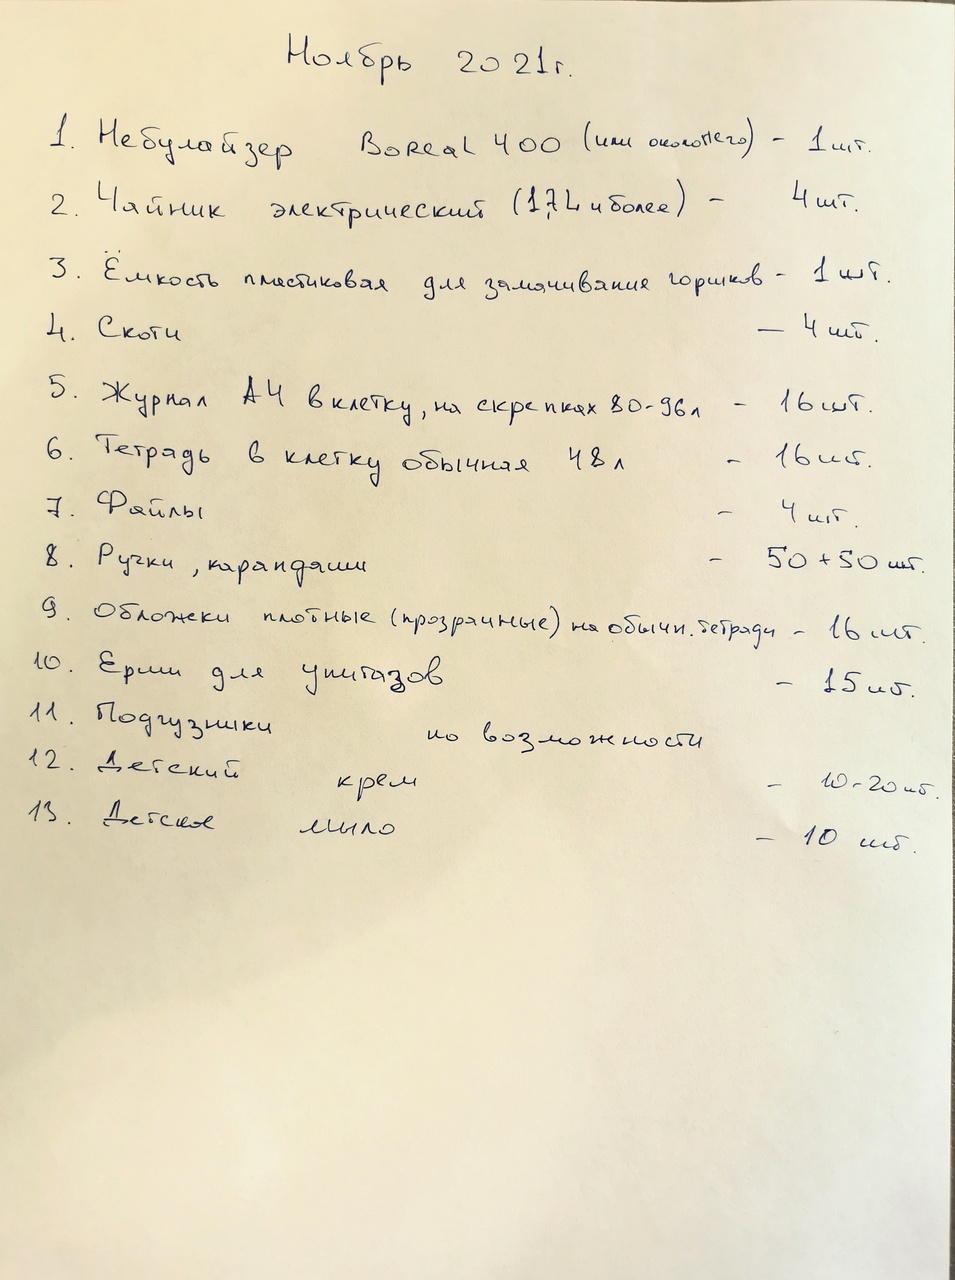 Ноябрь 2021г.
1. Небулайзер Boreal 400 (или около него) - 1 шт.
2. Чайник электрический (1,7L и более) - 4 шт.
3. Ёмкость пластиковая для замачивания горшков - 1 шт.
4. Скотч - 4 шт.
5. Журнал А4 в клетку, на скрепках 80-96 л - 16 шт.
6. Тетрадь в клетку обычная 48 л - 16 шт.
7. Файлы - 4 шт.
8. Ручки, карандаши - 50 + 50 шт.
9. Обложки плотные (прозрачные) на обычн. тетради - 16 шт.
10. Ерши для унитазов - 15 шт.
11. Подгузники по возможности
12. Детский крем - 10-20 шт.
13. Детское мыло - 10 шт.